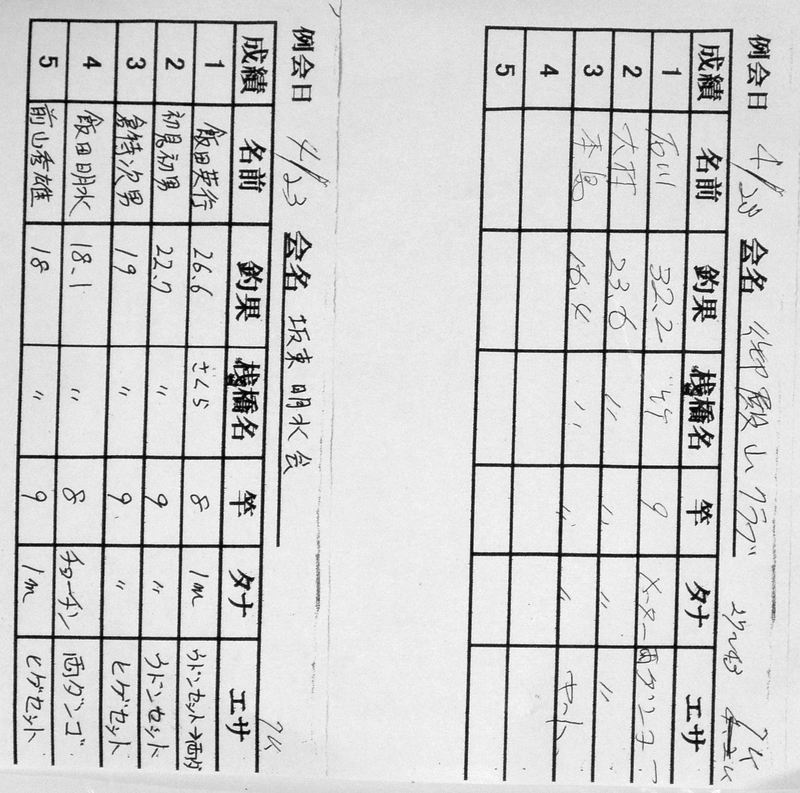 例会日 4/20 会名 御殿山クラブ
7K
成績 名前 釣果 桟橋名 竿 タナ エサ
1 石川 32.2 9 メーター 両ダンゴ
2 大村 23.6 〃 〃 〃 〃
3 本島 16.4 〃 〃 〃 セット
4
5
例会日 4/23 会名 坂東明水会
7K
成績 名前 釣果 桟橋名 竿 タナ エサ
1 飯田英行 26.6 さくら 8 1m ウドンセット→両ダ
2 初見初男 22.7 〃 9 〃 ウドンセット
3 倉持次男 19 〃 9 〃 ヒゲセット
4 飯田明水 18.1 〃 8 チョーチン 両ダンゴ
5 前山秀雄 18 〃 9 1m ヒゲセット